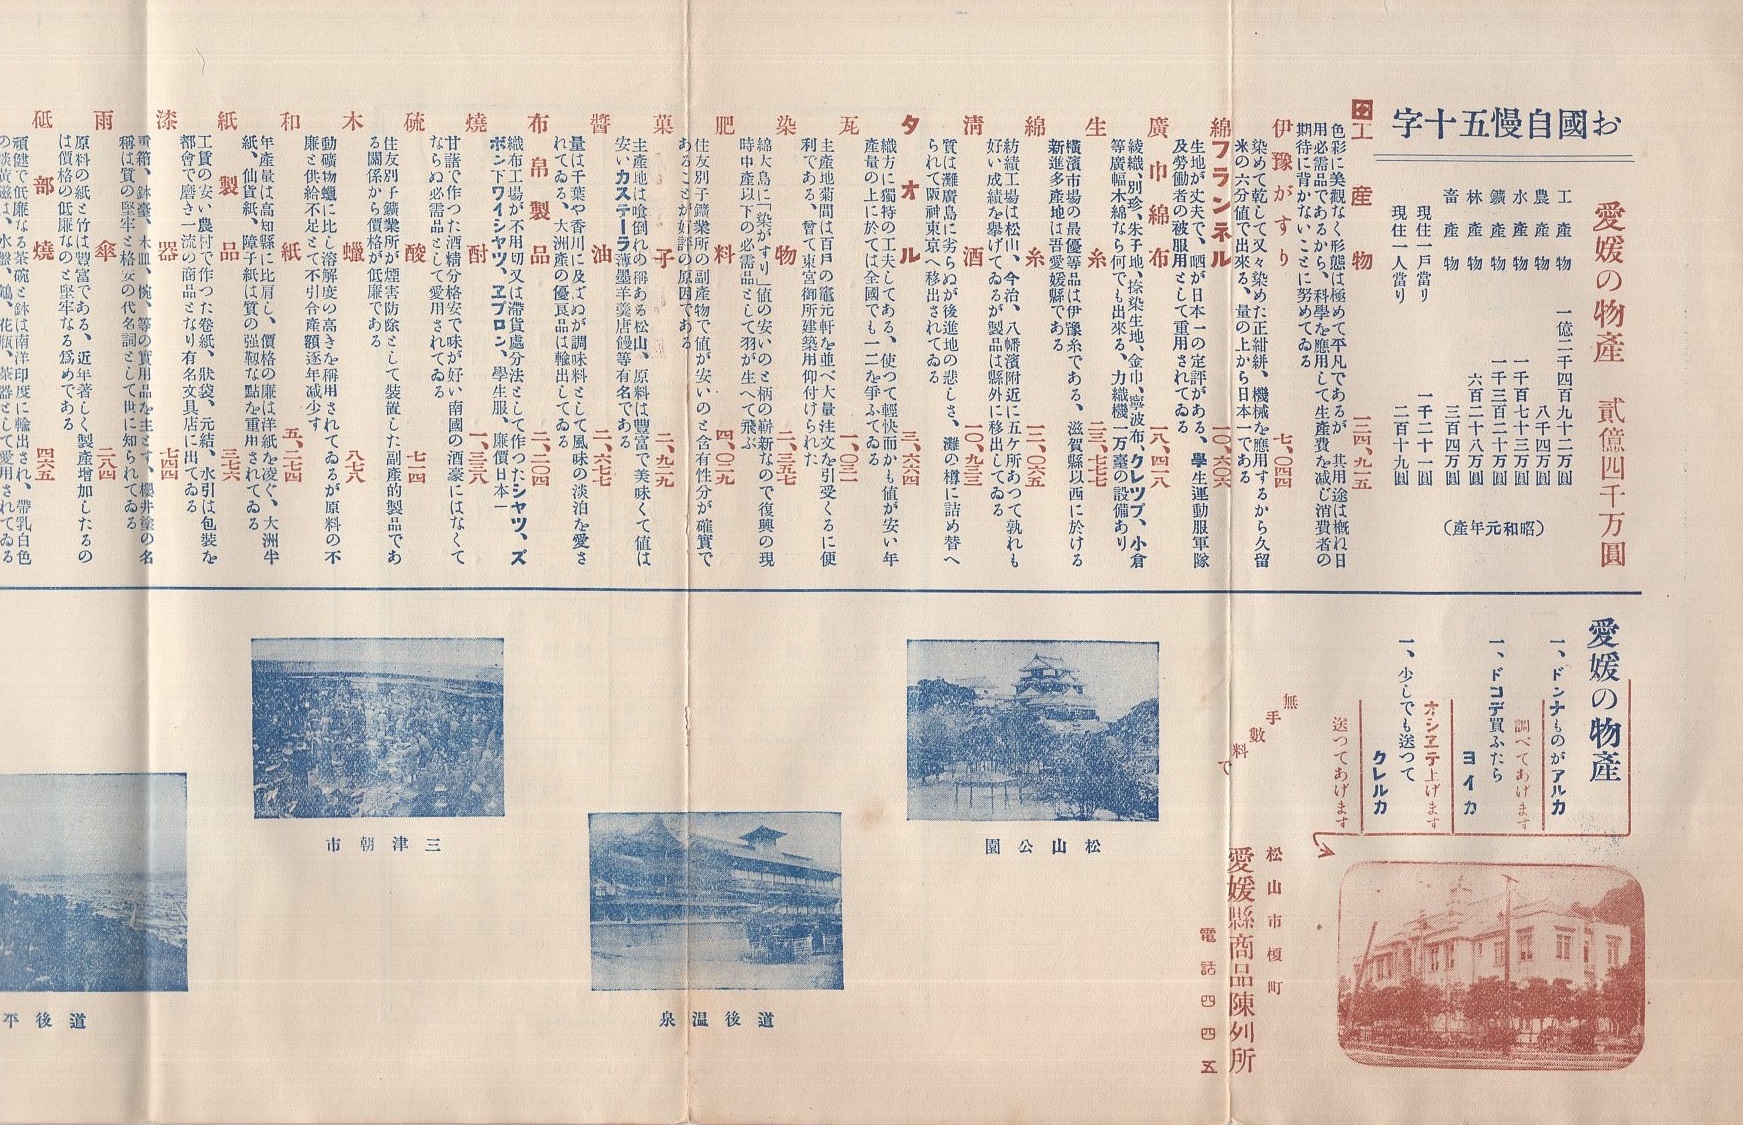 お國自慢五十字
愛媛の物產 貳億四千万圓
工產物 一億二千四百九十二万圓
農產物 八千四万圓
水產物 一千百七十三万圓
鑛產物 一千三百二十万圓
林產物 六百二十八万圓
畜產物 三百四万圓
現住一戶當り 一千二十一圓
現住一人當り 二百十九圓
(昭和元年產)
工產物 一二四、九一五
色彩に美觀なく形態は極めて平凡であるが、其用途は槪ね日
用必需品であるから、科學を應用して生產費を減じ消費者の
期待に背かないことに努めてゐる
伊豫がすり 七、〇四四
染めて乾して又々染めた正紺絣、機械を應用するから久留
米の六分値で出來る、量の上から日本一である
綿フランネル 一〇、六〇六
生地が丈夫で、晒が日本一の定評がある、學生運動服軍隊
及勞働者の被服用として重用されてゐる
廣巾綿布 一八、四一八
綾織、別珍、朱子地、捺染生地、金巾、寧波布、クレツプ、小倉
等廣幅木綿なら何でも出來る、力織機一万臺の設備あり
生糸 二三、七七一
橫濱市場の最優等品は伊豫糸である、滋賀縣以西に於ける
新進多產地は吾愛媛縣である
綿糸 一二、〇六五
紡績工場は松山、今治、八幡濱附近に五ケ所あつて孰れも
好い成績を擧げてゐるが製品は縣外に移出してゐる
淸酒 一〇、九三三
質は灘廣島に劣らぬが後進地の悲しさ、灘の樽に詰め替へ
られて阪神東京へ移出されてゐる
タオル 三、六六四
織方に獨特の工夫してある、使つて輕快而かも値が安い年
產量の上に於ては全國でも一二を爭ふてゐる
瓦 一、〇三一
主產地菊間は百戶の竈元軒を並べ大量注文を引受くるに便
利である、曾て東宮御所建築用仰付けられた
染物 二、三五七
綿大島に「染がすり」値の安いのと柄の嶄新なので復興の現
時中產以下の必需品として羽が生へて飛ぶ
肥料 四、〇二九
住友別子鑛業所の副產物で値が安いのと含有性分が確實で
あることが好評の原因である
菓子 二、九二九
主產地は喰倒れの稱ある松山、原料は豐富で美味くて値は
安いカステーラ薄墨羊羹唐饅等有名である
醬油 二、六七七
量は千葉や香川に及ばぬが調味料として風味の淡泊を愛さ
れてゐる、大洲產の優良品は輸出してゐる
布帛製品 二、二〇四
織布工場が不用切又は滯貨處分法として作つたシヤツ、ズ
ボン下ワイシヤツ、ヱプロン、學生服、廉價日本一
燒酎 一、三三八
甘諸で作つた酒精分格安で味が好い南國の酒豪にはなくて
ならぬ必需品として愛用されてゐる
硫酸 七一四
住友別子鑛業所が煙害防除として裝置した副產的製品であ
る關係から價格が低廉である
木蠟 八七八
動鑛物蠟に比し溶解度の高きを稱用されてゐるが原料の不
廉と供給不足とで不引合產額逐年减少す
和紙 五、二七四
年產量は高知縣に比肩し、價格の廉は洋紙を凌ぐ、大洲半
紙、仙貨紙、障子紙は質の强靱な點を重用されてゐる
紙製品 三七六
工賃の安い農村で作つた卷紙、狀袋、元結、水引は包裝を
都會で磨き一流の商品となり有名文具店に出てゐる
漆器 七四四
重箱、鉢臺、木皿、椀、等の實用品を主とす、櫻井塗の名
稱は質の堅牢と格安の代名詞として世に知られてゐる
雨傘 二八四
原料の紙と竹は豐富である、近年著しく製產增加したるの
は價格の低廉なのと堅牢なる爲めである
砥部燒 四六五
頑健で低廉なる茶碗と鉢は南洋印度に輸出され、帶乳白色
の淡黃磁は、水盤、鶴、花瓶、茶器として愛用されてゐる
愛媛の物產
一、ドンナものがアルカ
調べてあげます
一、ドコデ買ふたら
ヨイカ
オシヱテ上げます
一、少しでも送つて
クレルカ
送つてあげます
無手數料で
松山市榎町
愛媛縣商品陳列所
電話四四五
松山公園
三津朝市
道後溫泉
道後平